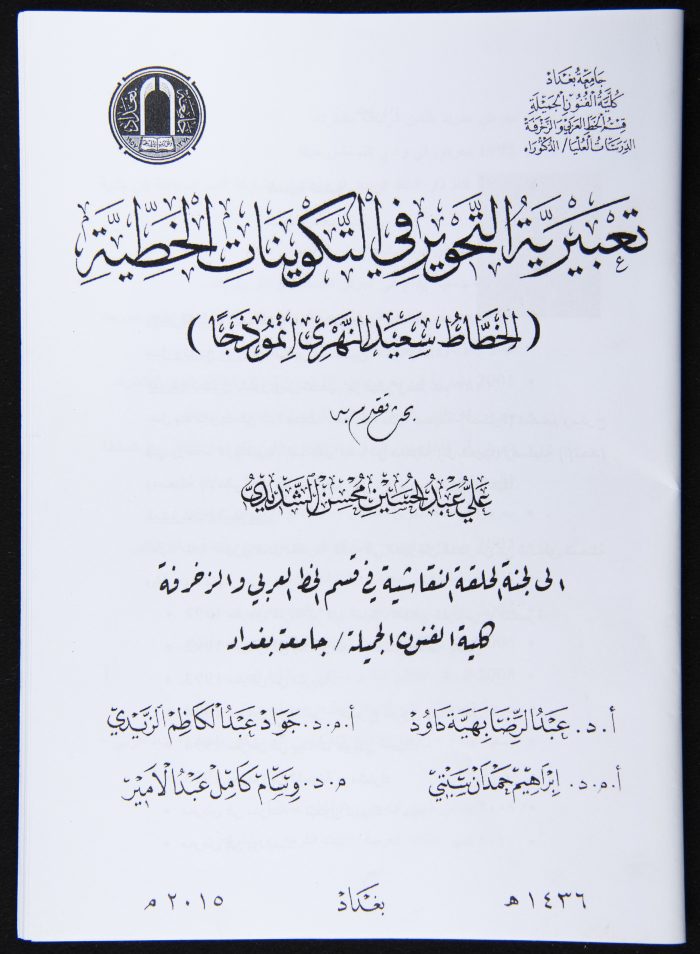 جامعة بغداد
كلية الفنون الجميلة
قسم الخط العربي والزخرفة
الدراسات العليا / الدكتوراه
تعبيرية التحوير في التكوينات الخطية
( الخطاط سعيد النهري انموذجاً )
بحث تقدم به
علي عبد الحسين محسن الشديدي
الى لجنة الحلقة النقاشية في قسم الخط العربي والزخرفة
كلية الفنون الجميلة / جامعة بغداد
أ . د . عبد الرضا بهية داود أ . م . د . جواد عبد الكاظم الزيدي
أ . م . د . إبراهيم حمدان سبتي م . د . وسام كامل عبد الامير
١٤٣٦ هـ بغداد ٢٠١٥ م